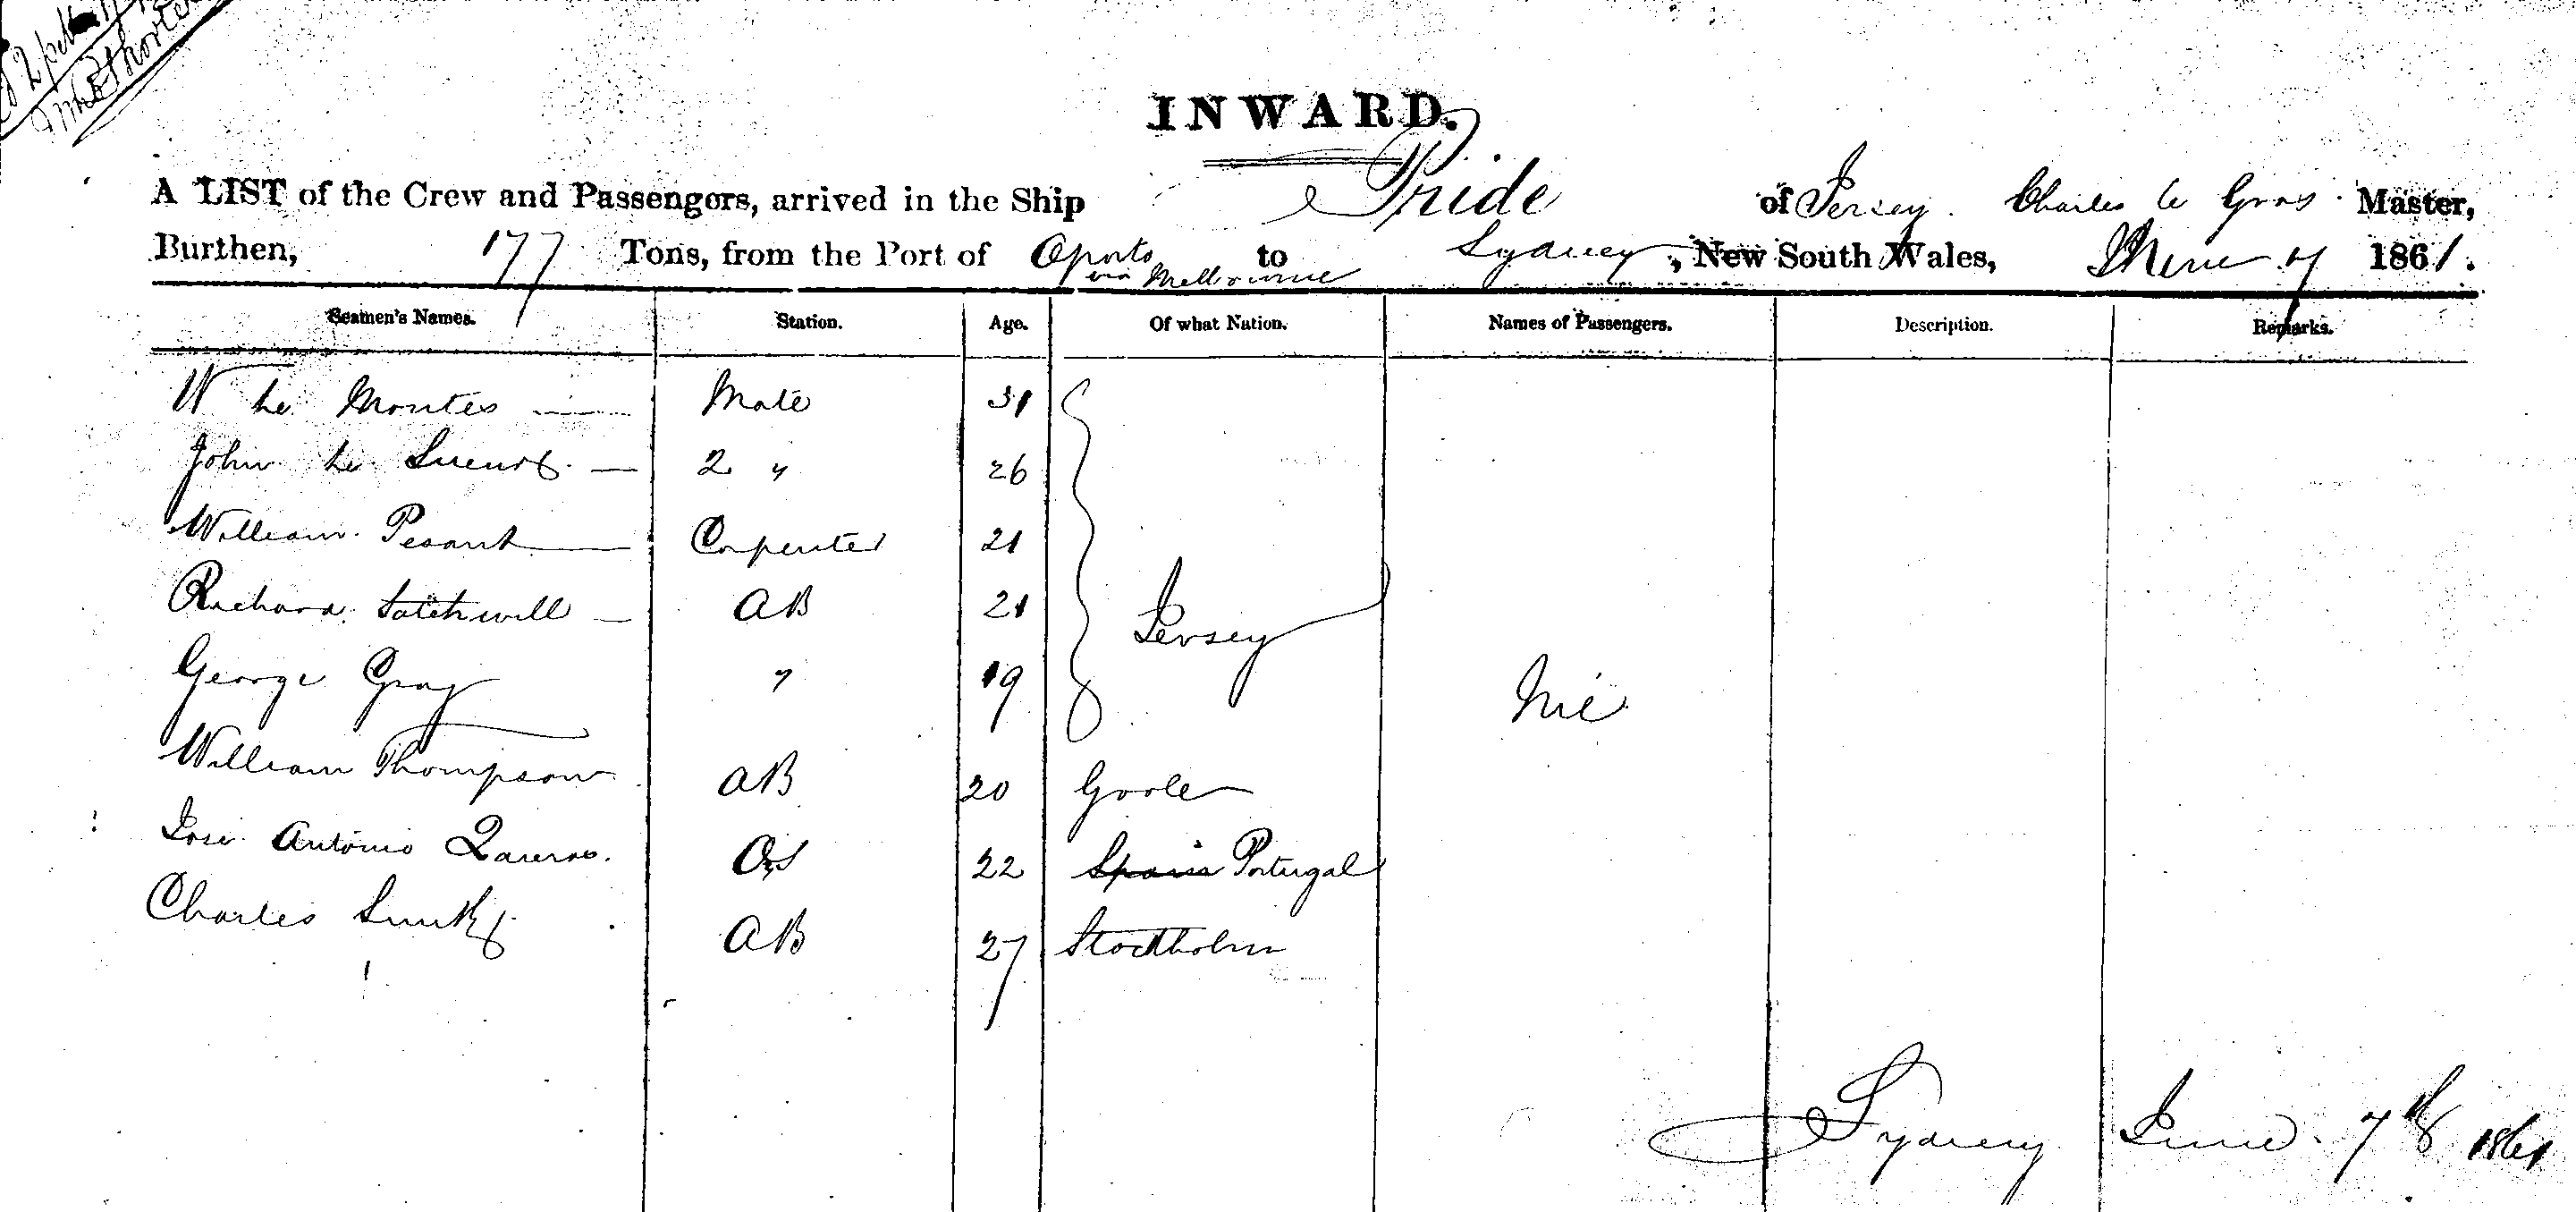 INWARD.
A LIST of the Crew and Passengers, arrived in the Ship Pride of Jersey. Charles le Gros Master,
Burthen, 177 Tons, from the Port of Oporto via Melbourne to Sydney, New South Wales, June 7 1861.
Seamen's Names. Station. Age. Of what Nation. Names of Passengers. Description. Remarks.
W Le Montes Mate 31
John Le Sueur 2 " 26
William Pesant Carpenter 21
Richard Satchwill AB 21 Jersey
George Gray " 19 Nil
William Thompson AB 20 Goole
Jose Antonio OS 22 Spain Portugal
Charles Smith AB 27 Stockholm
Sydney June 7th 1861